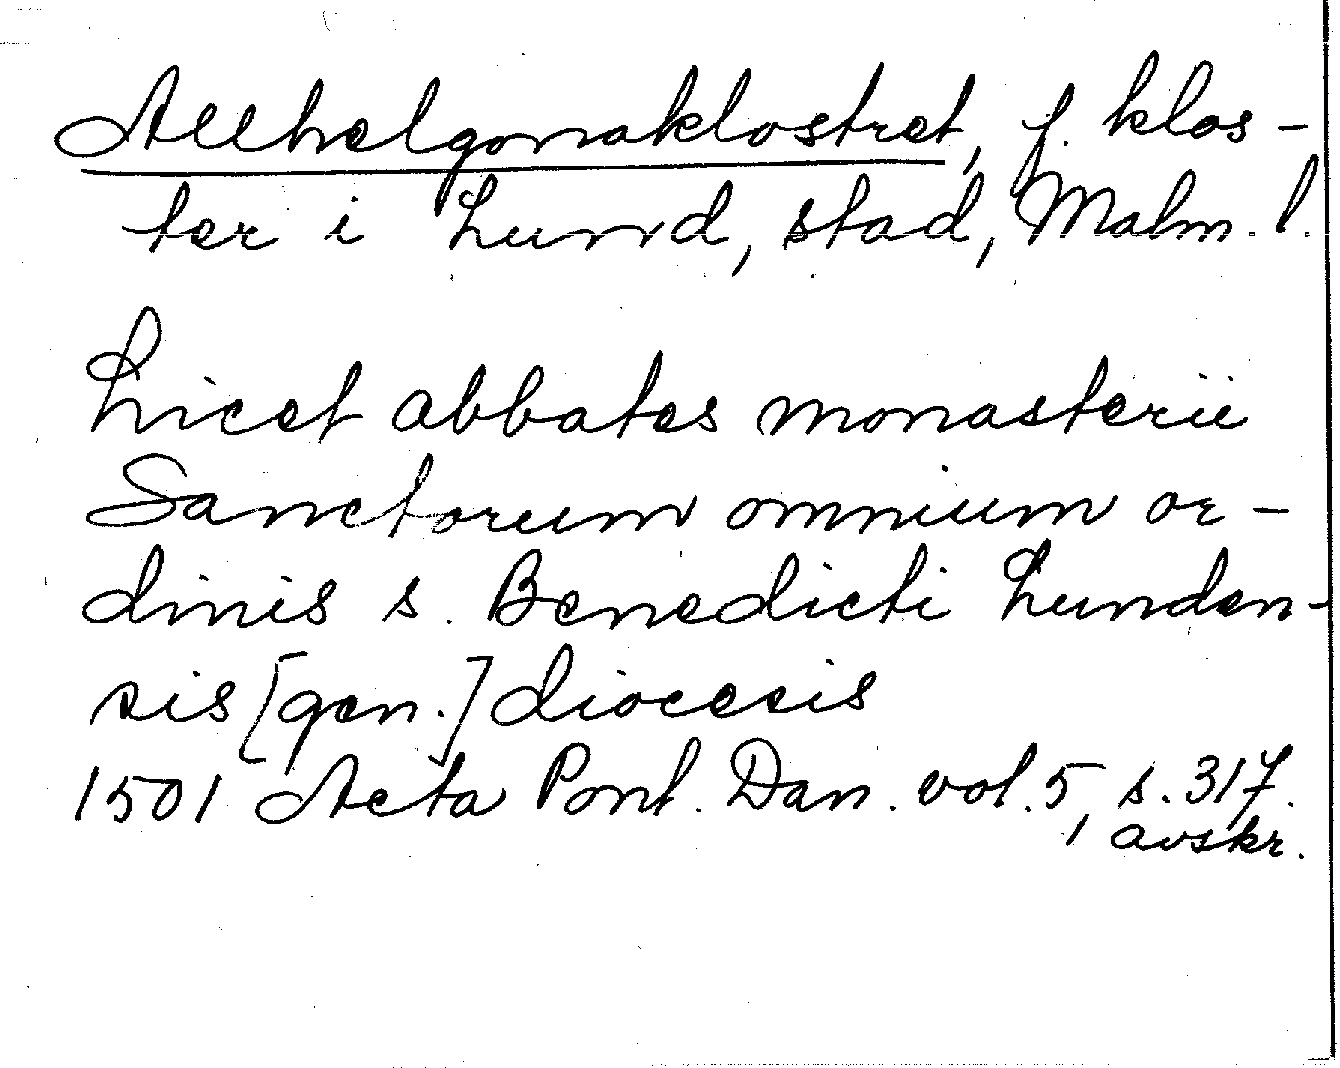 Allhelgonaklostret, f. klos-
ter i Lund, stad, Malm. l.
Licet abbates monasterii
Sanctorum omnium or-
dinis s. Benedicti Lunden-
sis [gen.] diocesis
1501 Acta Pont. Dan. vol. 5, s. 317.
avskr.